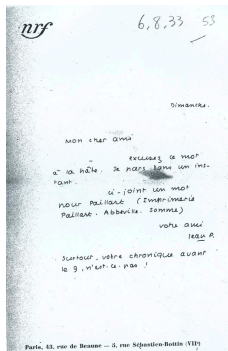 nrf
6,8,33 53
Dimanche.
Mon cher ami
excusez ce mot
à la hâte. Je pars dans un ins-
tant.
ci-joint un mot
pour Paillart (Imprimerie
Paillart. Abbeville. Somme)
votre ami
Jean P.
Surtout, votre chronique avant
le 9, n'est-ce-pas !
Paris, 43, rue de Beaune — 5, rue Sébastien-Bottin (VIIe)